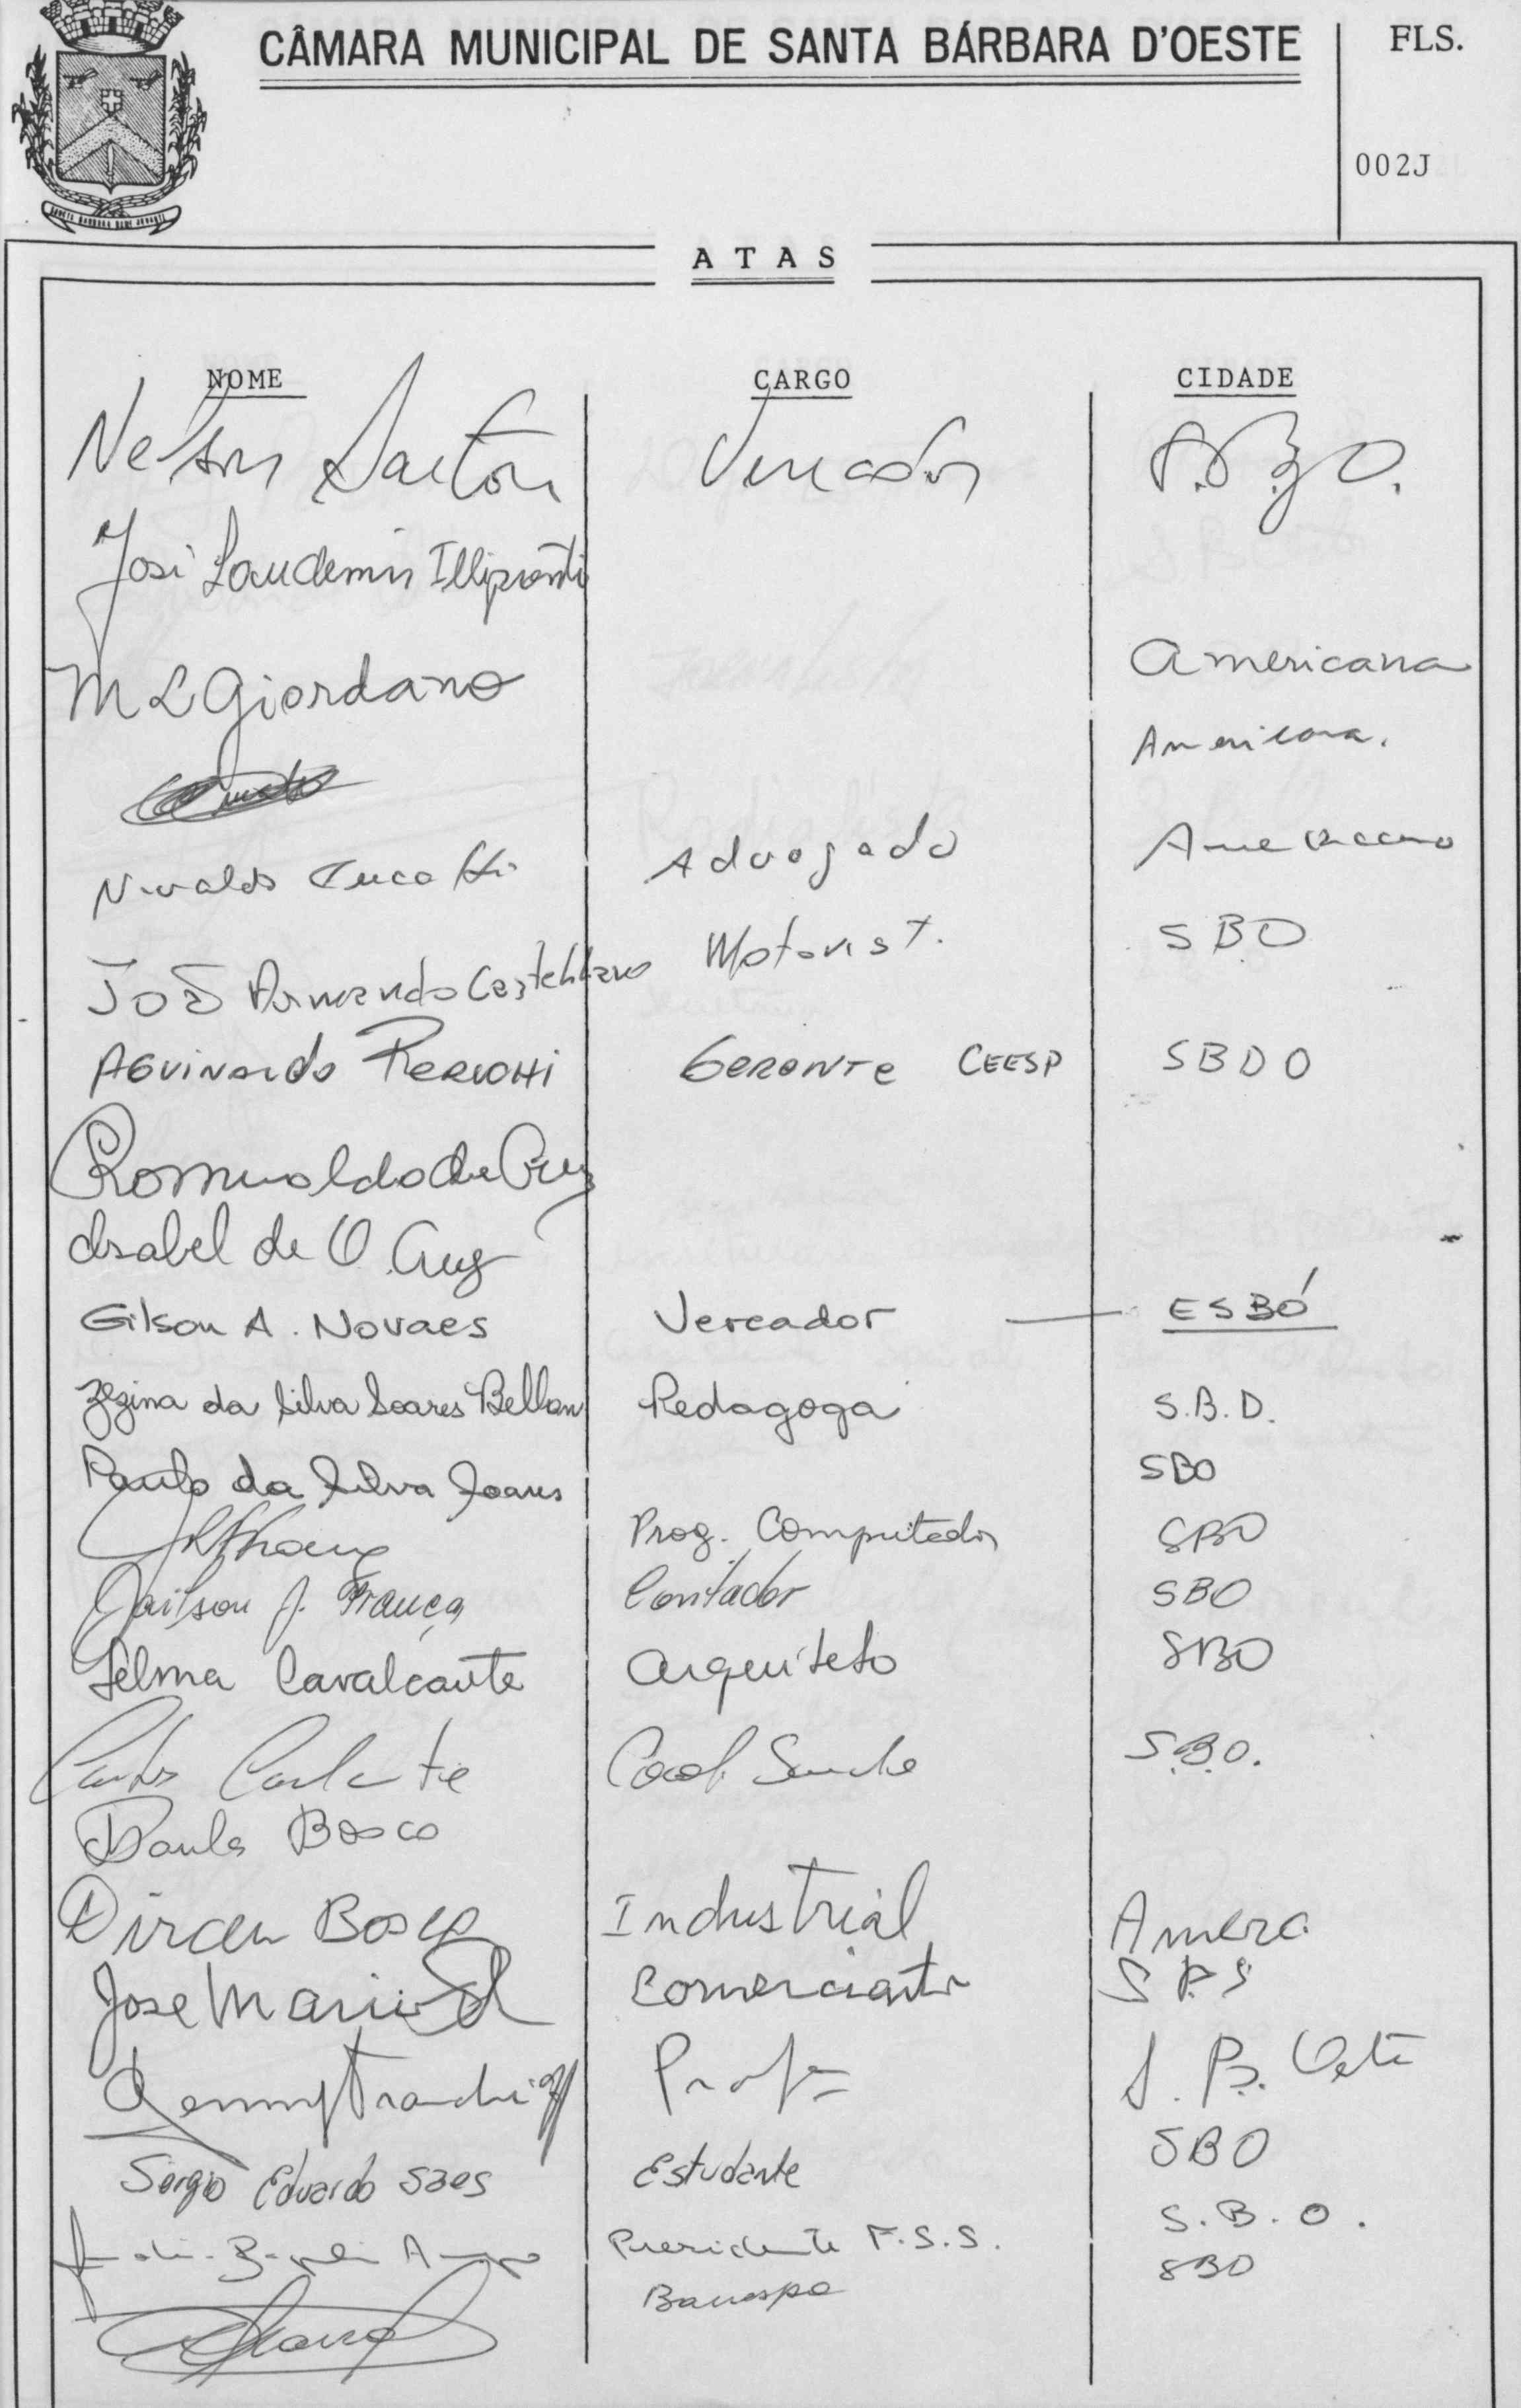 CÂMARA MUNICIPAL DE SANTA BÁRBARA D'OESTE
FLS.
002J
ATAS
NOME CARGO CIDADE
Nelson Sartori Vereador S.B.O.
José Laudemir
M L Giordano Americana
Americana.
Nivaldo Advogado Americana
João Armando Castellano Motorist. SBO
Aguinardo Gerente CEESP SBDO
Romualdo da Cruz
Isabel de O. Cruz
Gilson A. Novaes Vereador ESBÓ
Zezina da Silva Soares Bellan Pedagoga S.B.D.
Paulo da Silva Soares SBO
Prog. Computador SBO
Jailson J. França Contador SBO
Selma Cavalcante arquiteto SBO
Carlos S.B.O.
Paula Bosco
Dirceu Bosco Industrial Amera
Jose Maria Comerciante
Profa S. B. Oeste
Sergio Eduardo Saes Estudante SBO
Presidente F.S.S. S.B.O.
Banespa SBO